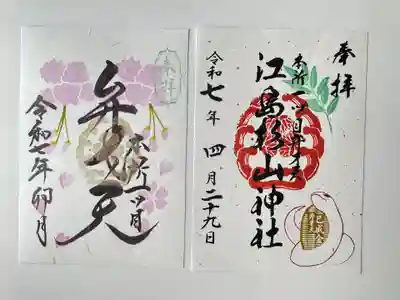 奉拝
弁才天
本所一ツ目
令和七年卯月
奉拝
本所一ツ目弁才天
江島杉山神社
令和七年四月二十九日
己成金